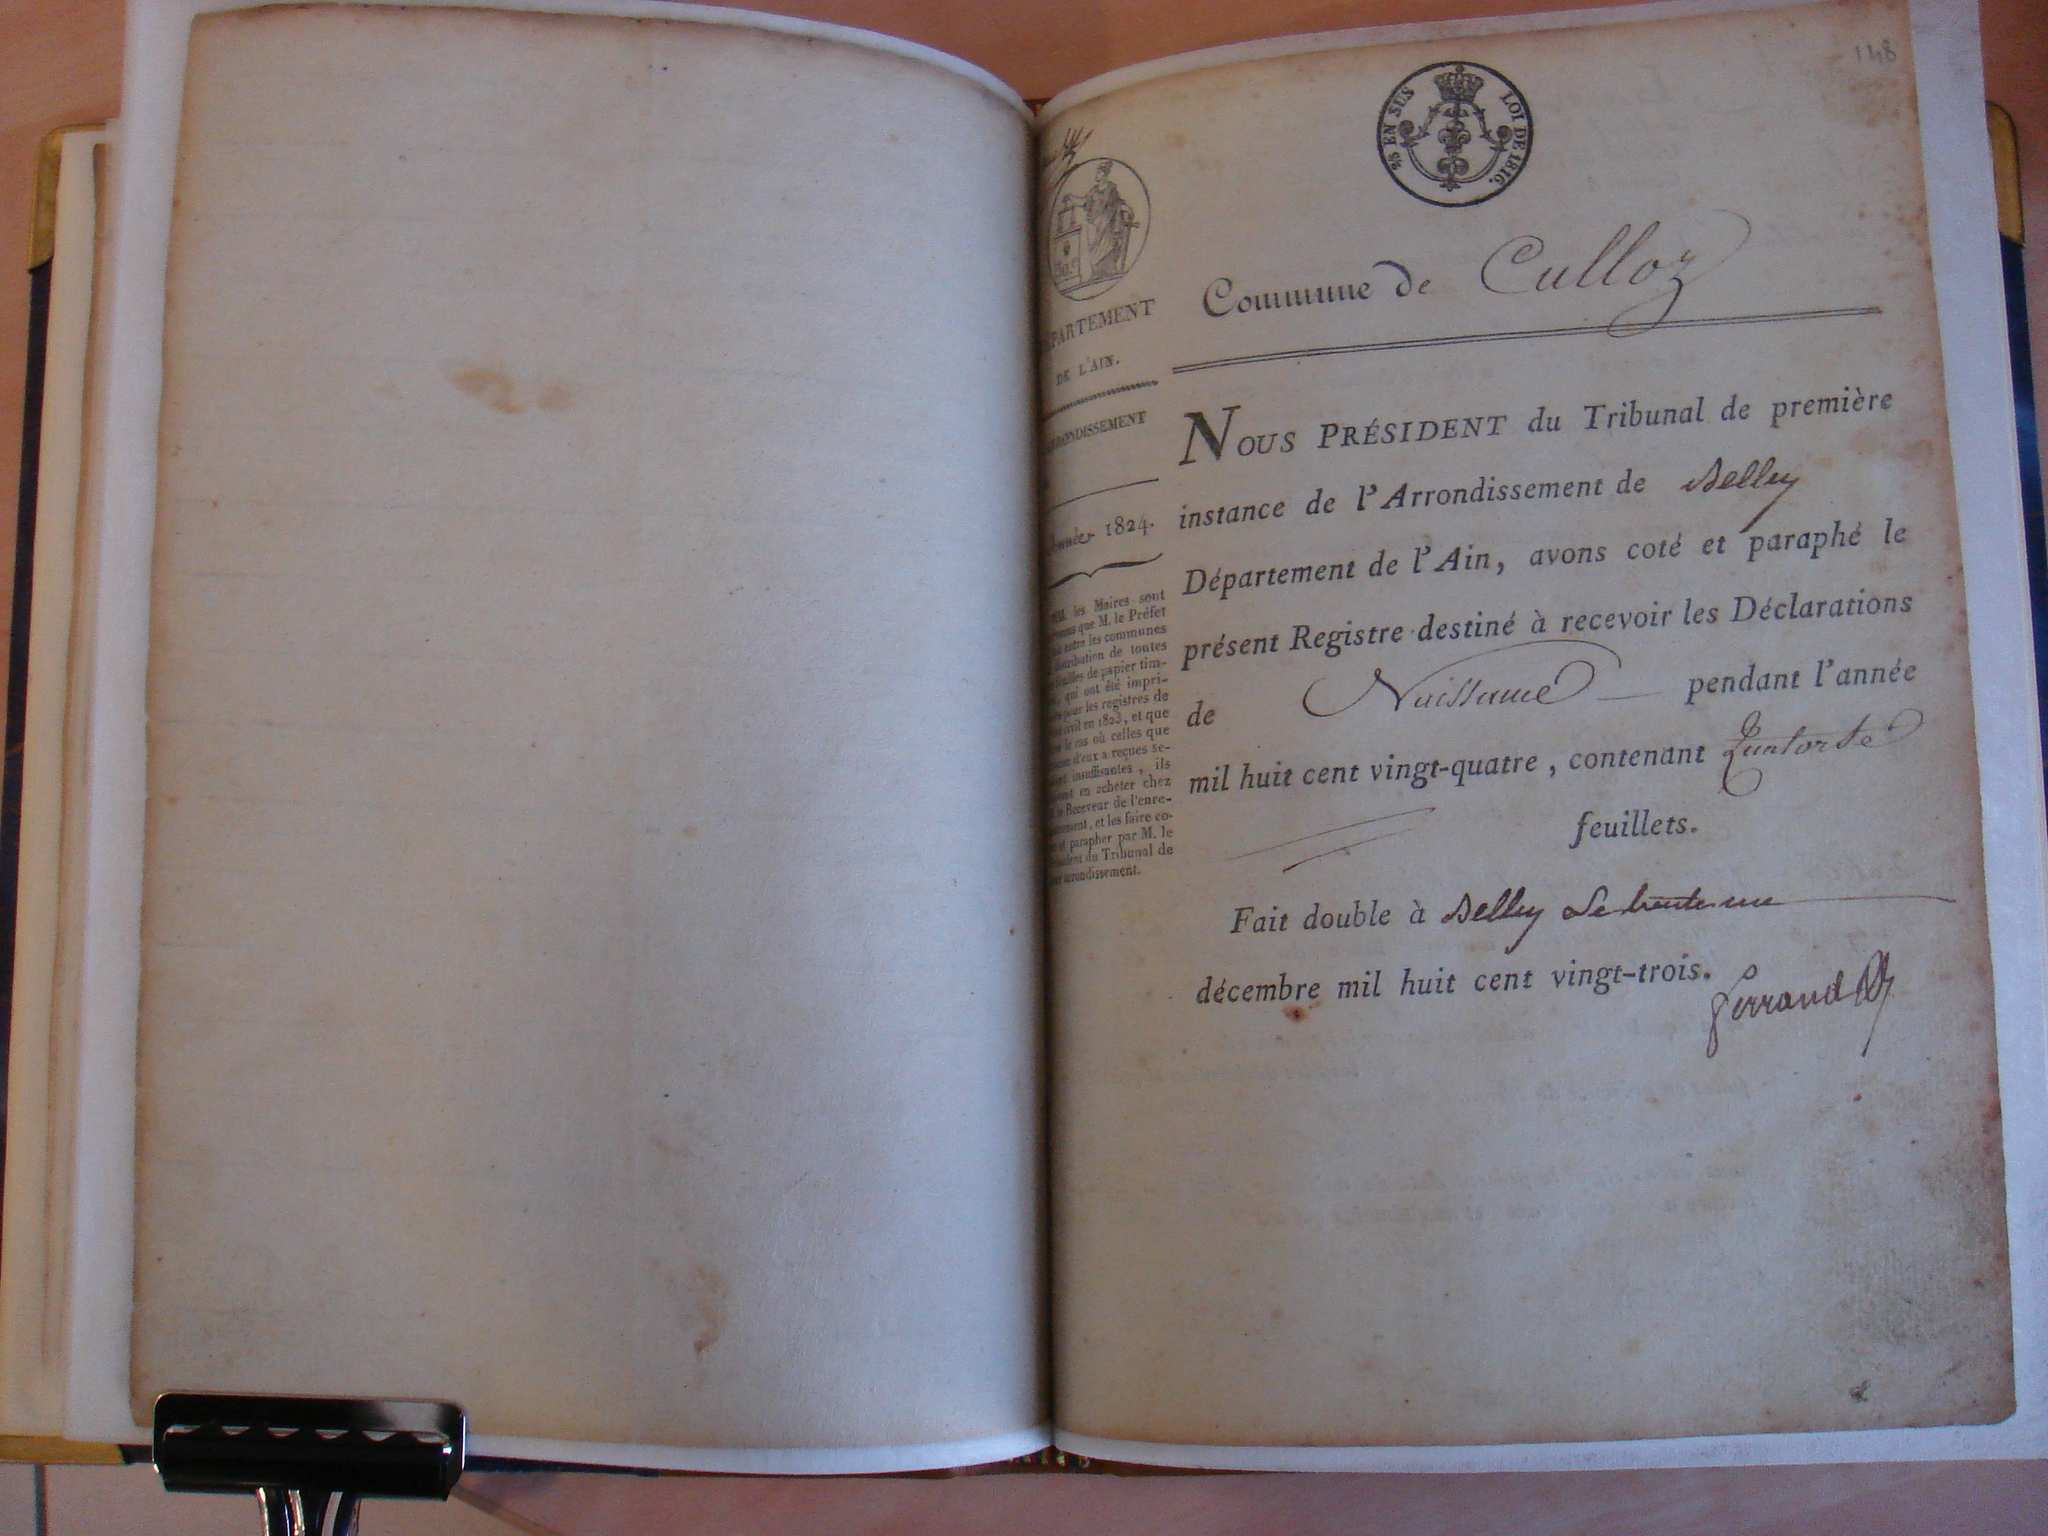 148
25/% EN SUS LOI DE 1816.
DÉPARTEMENT
DE L'AIN.
ARRONDISSEMENT
Année 1824.
MM. les Maires sont
que M. le Préfet
entre les communes
distribution de toutes
feuilles de papier tim-
qui ont été impri-
pour les registres de
civil en 1823, et que
le cas où celles que
d'eux a reçues se-
insuffisantes, ils
en acheter chez
le Receveur de l'enre-
, et les faire co-
et parapher par M. le
du Tribunal de
arrondissement.
Commune de Culloz
NOUS PRÉSIDENT du Tribunal de première
instance de l'Arrondissement de Belley
Département de l'Ain, avons coté et paraphé le
présent Registre destiné à recevoir les Déclarations
de Naissance pendant l'année
mil huit cent vingt-quatre, contenant Quatorze
feuillets.
Fait double à Belley Le trente un
décembre mil huit cent vingt-trois.
Ferrand